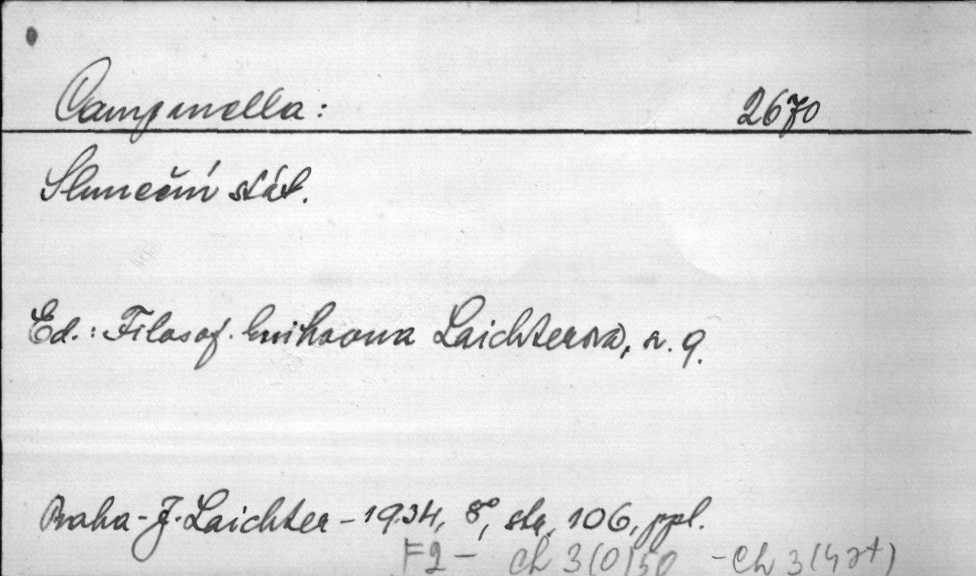 Campanella: 2670
Sluneční stát.
Ed.: Filosof. knihovna Laichterova, sv. 9.
Praha - J. Laichter - 1934, 8°, str. 106, ppl.
F2 - Ch 3(0)50 - Ch 3(47+)